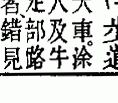 步道
大車。涂
及牛
足部路
者錯見